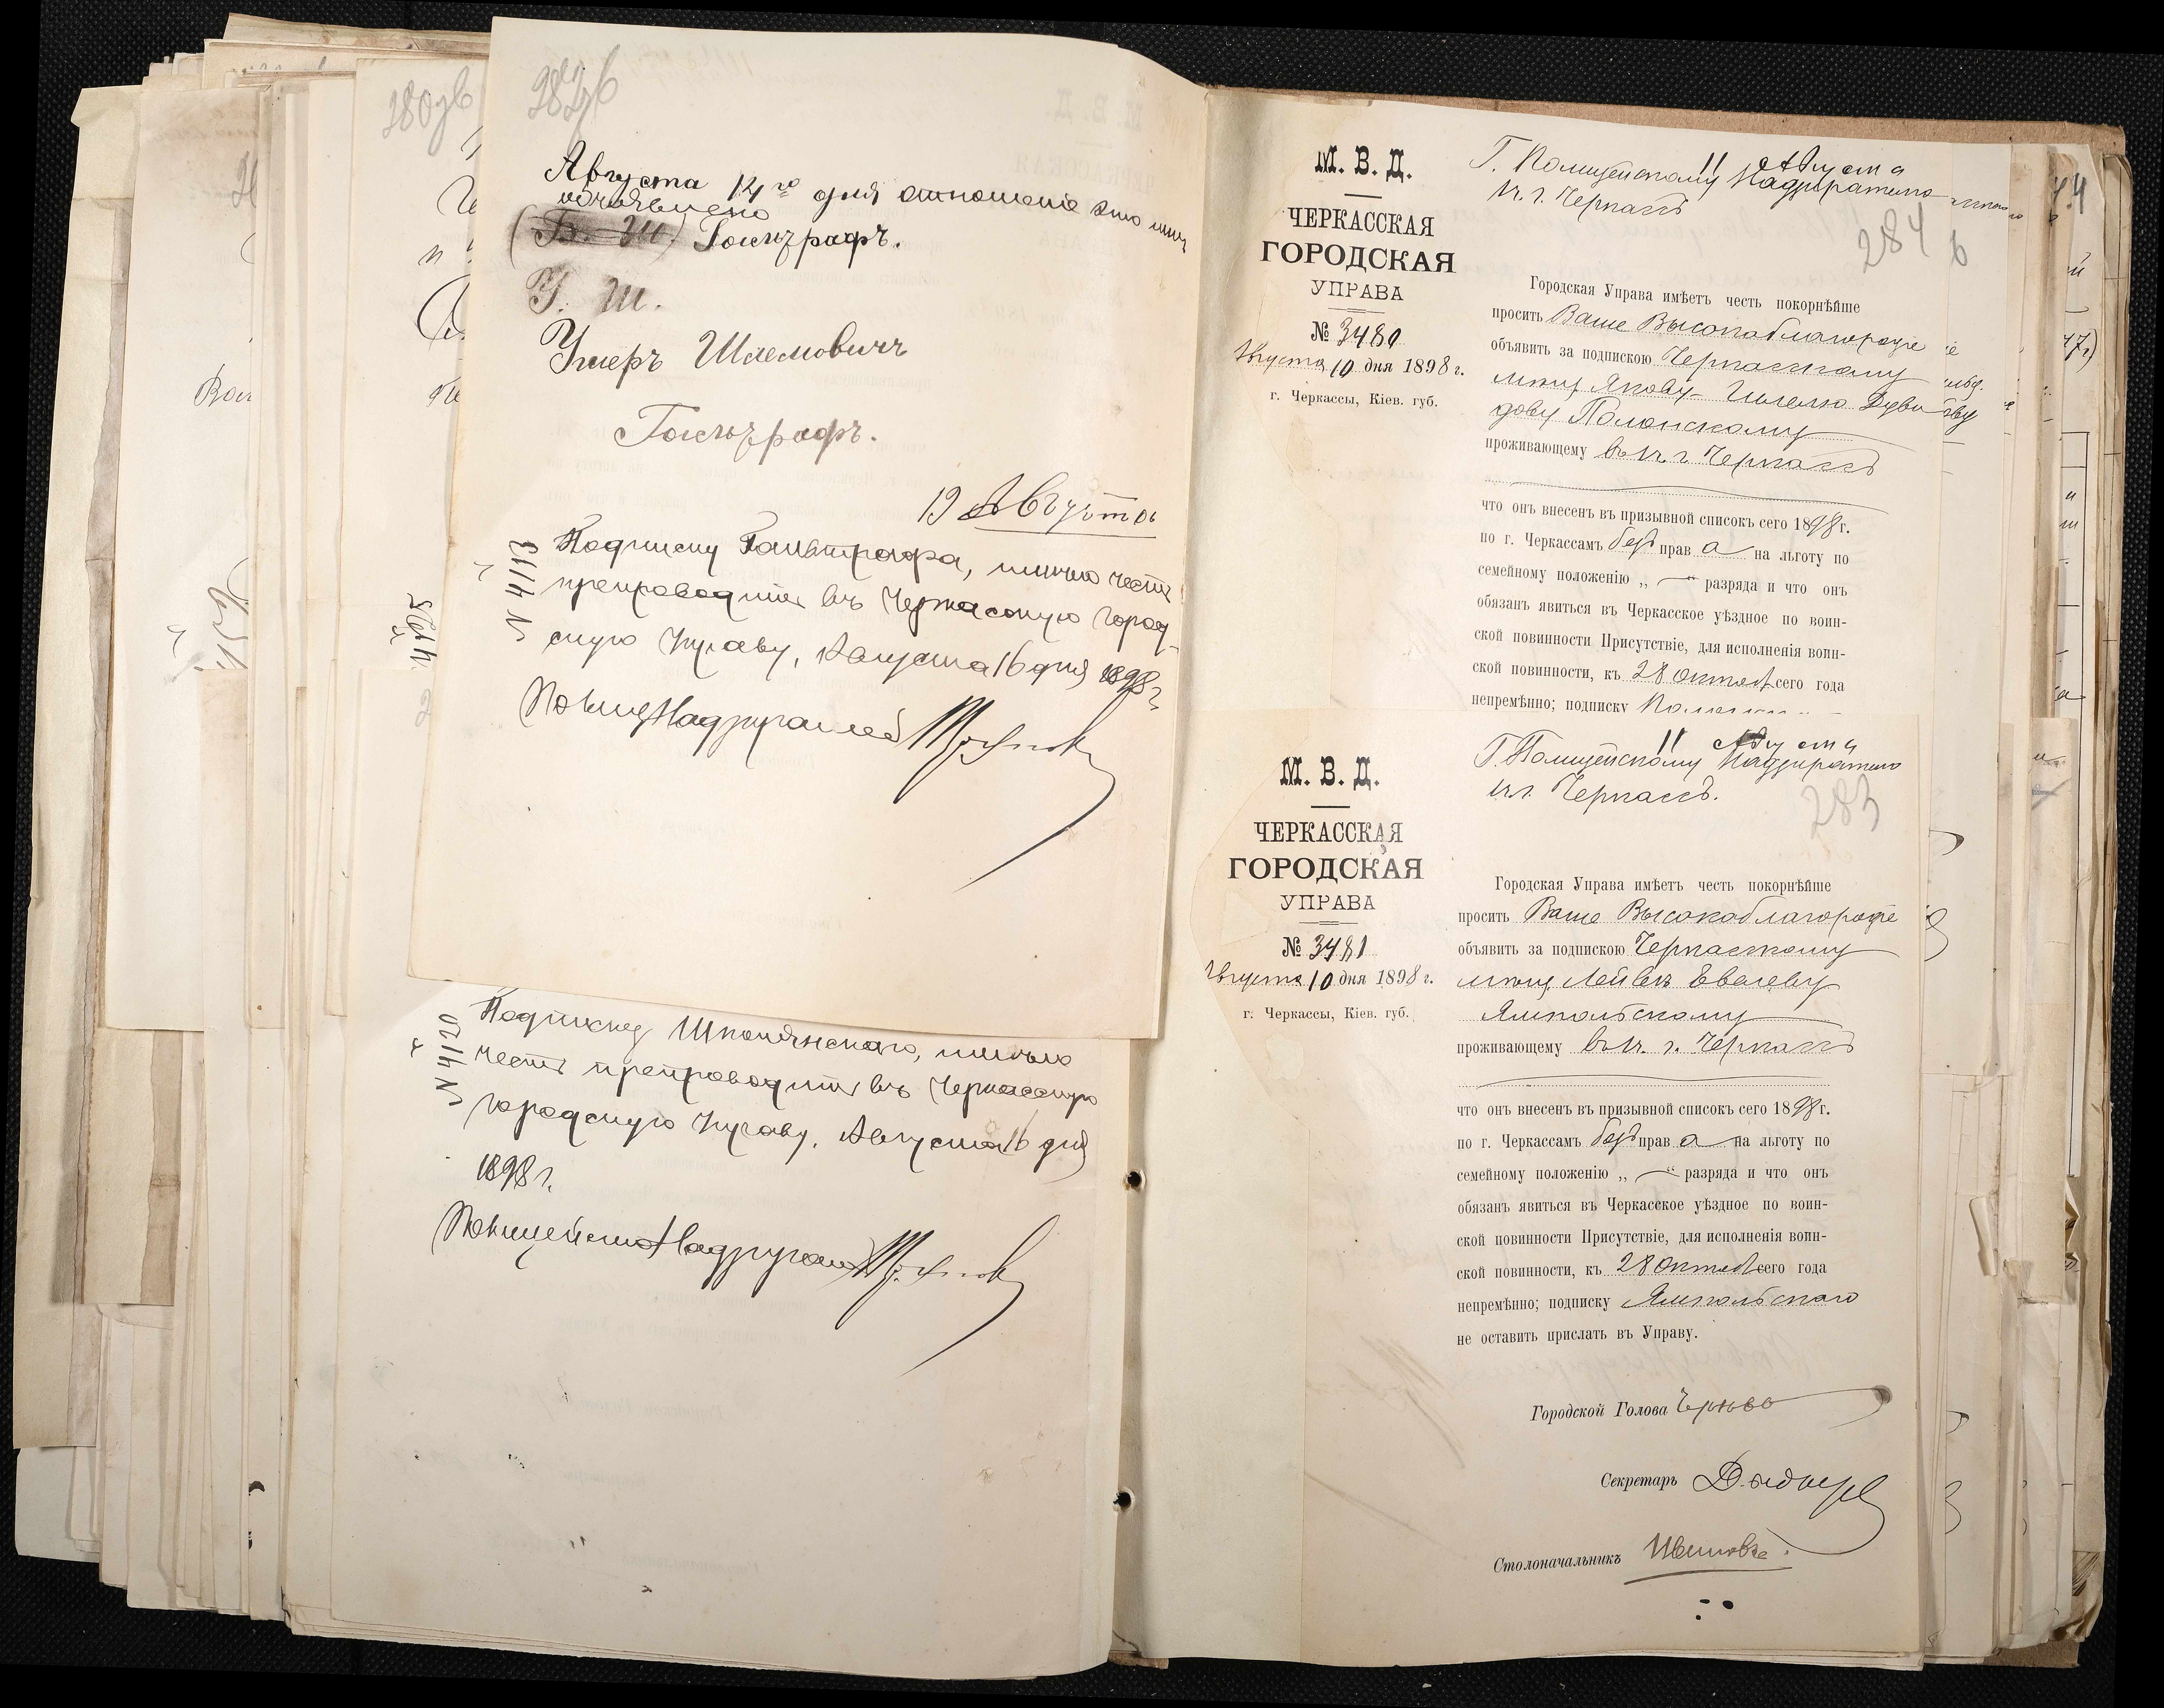 280 зв
282 зв
Августа 14го дня отношение это мнѣ
обчявлено
(Б. Ш) Гольтрафъ.
У. Ш.
Ушеръ Шлемовичъ
Гольтрафъ.
19 Августъ
№ 4113
Подписку Гальтрафа, имѣю честь
препроводить въ Черкасскую Город-
скую Управу, Августа 16 дня 1898 г.
Полиц Надзиратель
№ 4120
Подписку Шполянскаго, имѣю
честь препроводить въ Черкасскую
городскую Управу, Августа 16 дня
1898 г.
Полицейскій Надзиратель
М. В. Д.
ЧЕРКАССКАЯ
ГОРОДСКАЯ
УПРАВА
№ 3480
Августа 10 дня 1898 г.
г. Черкассы, Кіев. губ.
11 Августа
Г. Полицейскому Надзирателю
въ г. Черкассъ
284
Городская Управа имѣетъ честь покорнѣйше
просить Ваше Высокоблагородіе
объявить за подпискою Черкасскому
мѣщ. Якову-Гилелю Дуви
дову Полонскому
проживающему въ г. Черкассъ
что онъ внесенъ въ призывной списокъ сего 1898 г.
по г. Черкассамъ безъ прав а на льготу по
семейному положенію „ — “ разряда и что онъ
обязанъ явиться въ Черкасское уѣздное по воин-
ской повинности Присутствіе, для исполненія воин-
ской повинности, къ 28 Октяб сего года
непремѣнно; подписку
М. В. Д.
ЧЕРКАССКАЯ
ГОРОДСКАЯ
УПРАВА
№ 3481
Августа 10 дня 1898 г.
г. Черкассы, Кіев. губ.
11 Августа
Г. Полицейскому Надзирателю
въ г. Черкассъ.
283
Городская Управа имѣетъ честь покорнѣйше
просить Ваше Высокоблагородіе
объявить за подпискою Черкасскому
мѣщ. Лейбѣ Евелеву
Ямпольскому
проживающему въ г. Черкассъ
что онъ внесенъ въ призывной списокъ сего 1898 г.
по г. Черкассамъ безъ прав а на льготу по
семейному положенію „ — “ разряда и что онъ
обязанъ явиться въ Черкасское уѣздное по воин-
ской повинности Присутствіе, для исполненія воин-
ской повинности, къ 28 Октяб сего года
непремѣнно; подписку Ямпольскаго
не оставить прислать въ Управу.
Городской Голова
Секретарь
Столоначальникъ